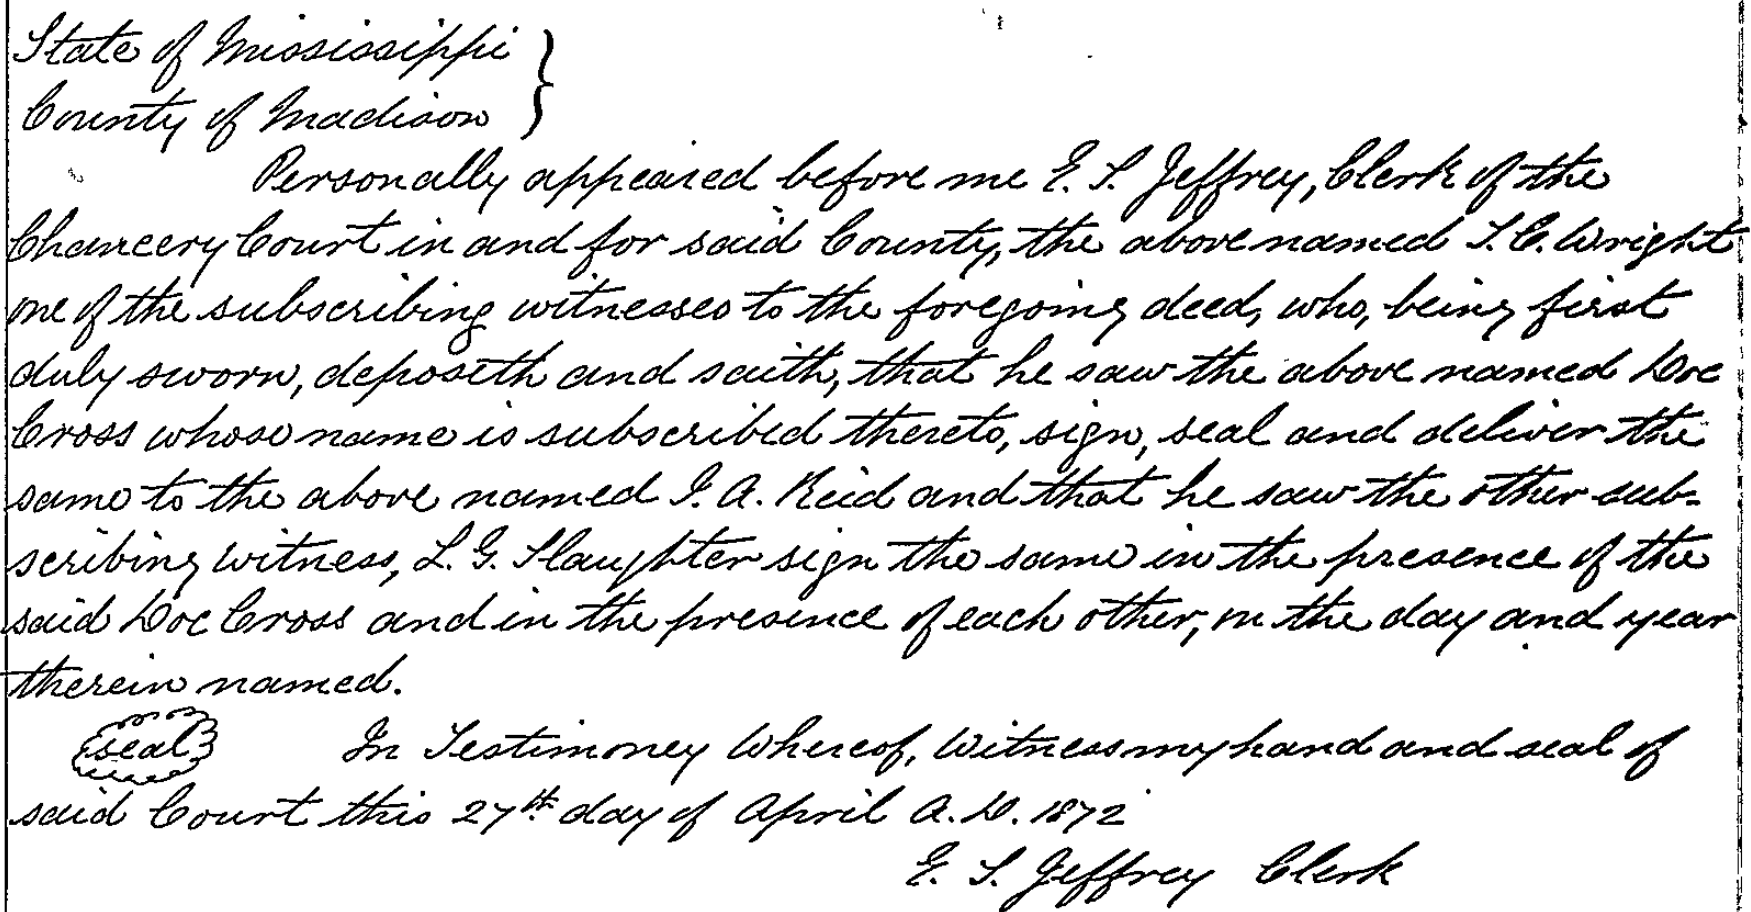 State of Mississippi }
County of Madison }
Personally appeared before me E. S. Jeffrey, Clerk of the
Chancery Court in and for said County, the above named T. C. Wright
one of the subscribing witnesses to the foregoing deed, who, being first
duly sworn, deposeth and saith, that he saw the above named Doc
Cross whose name is subscribed thereto, sign, seal and deliver the
same to the above named I. A. Reid and that he saw the other sub-
scribing witness, L. G. Slaughter sign the same in the presence of the
said Doc Cross and in the presence of each other, on the day and year
therein named.
seal In Testimoney Whereof, Witness my hand and seal of
said Court this 27th day of April A. D. 1872
E. S. Jeffrey Clerk